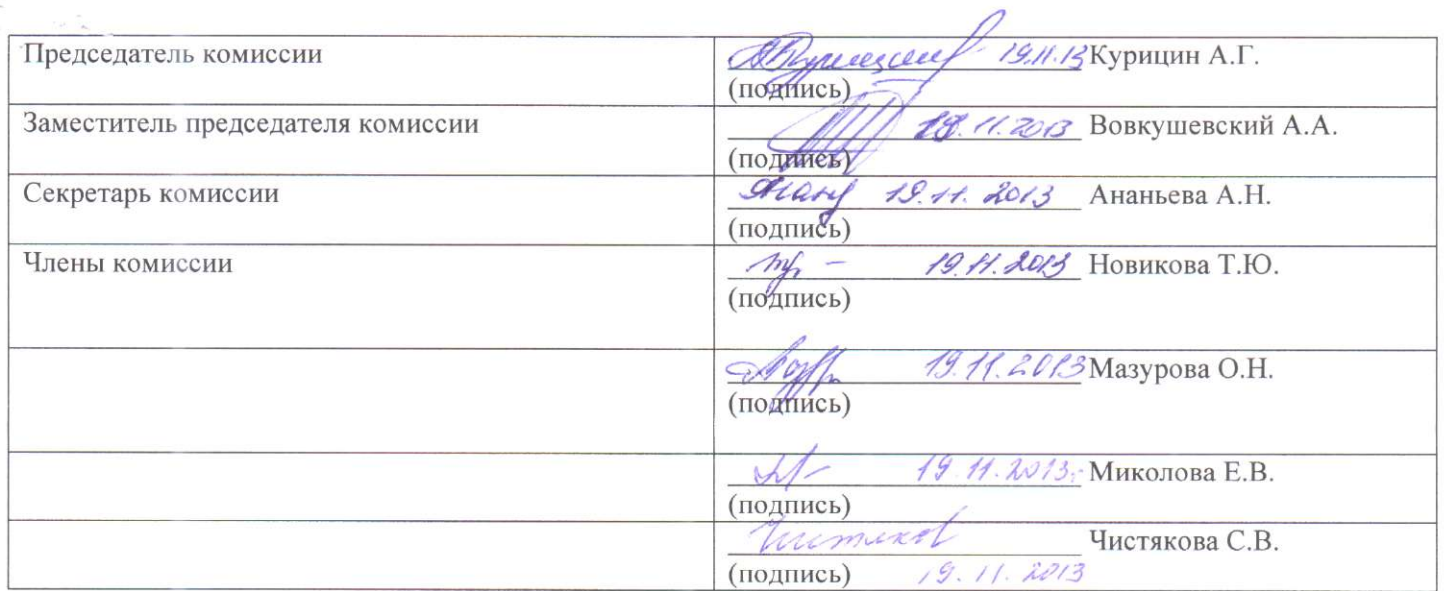 Председатель комиссии 19.11.13 Курицин А.Г.
(подпись)
Заместитель председателя комиссии 19.11.2013 Вовкушевский А.А.
(подпись)
Секретарь комиссии 19.11.2013 Ананьева А.Н.
(подпись)
Члены комиссии 19.11.2013 Новикова Т.Ю.
(подпись)
19.11.2013 Мазурова О.Н.
(подпись)
19.11.2013 Миколова Е.В.
(подпись)
Чистякова С.В.
(подпись) 19.11.2013